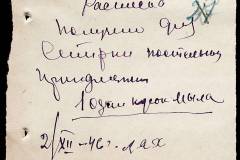 Расписка
Получил для
стирки постельных
принадлежн.
1 один кусок мыла
2/XII-46г.